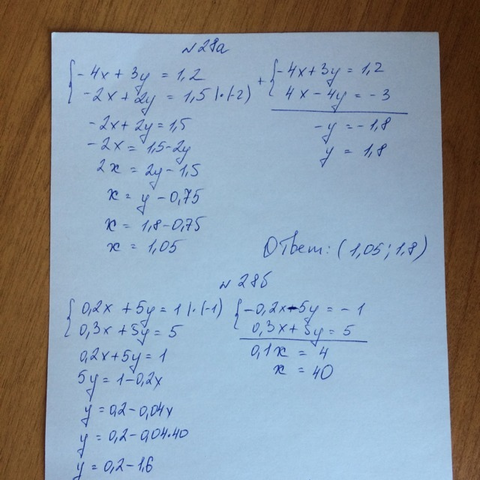 №28а
{-4x+3y = 1,2
-2x+2y = 1,5 |·(-2)
-2x+2y = 1,5
-2x = 1,5-2y
2x = 2y-1,5
x = y-0,75
x = 1,8-0,75
x = 1,05
+ {-4x+3y = 1,2
4x-4y = -3
-y = -1,8
y = 1,8
Ответ: (1,05; 1,8)
№28б
{0,2x+5y = 1 |·(-1)
0,3x+5y = 5
0,2x+5y = 1
5y = 1-0,2x
y = 0,2-0,04x
y = 0,2-0,04·40
y = 0,2-1,6
{-0,2x-5y = -1
0,3x+5y = 5
0,1x = 4
x = 40